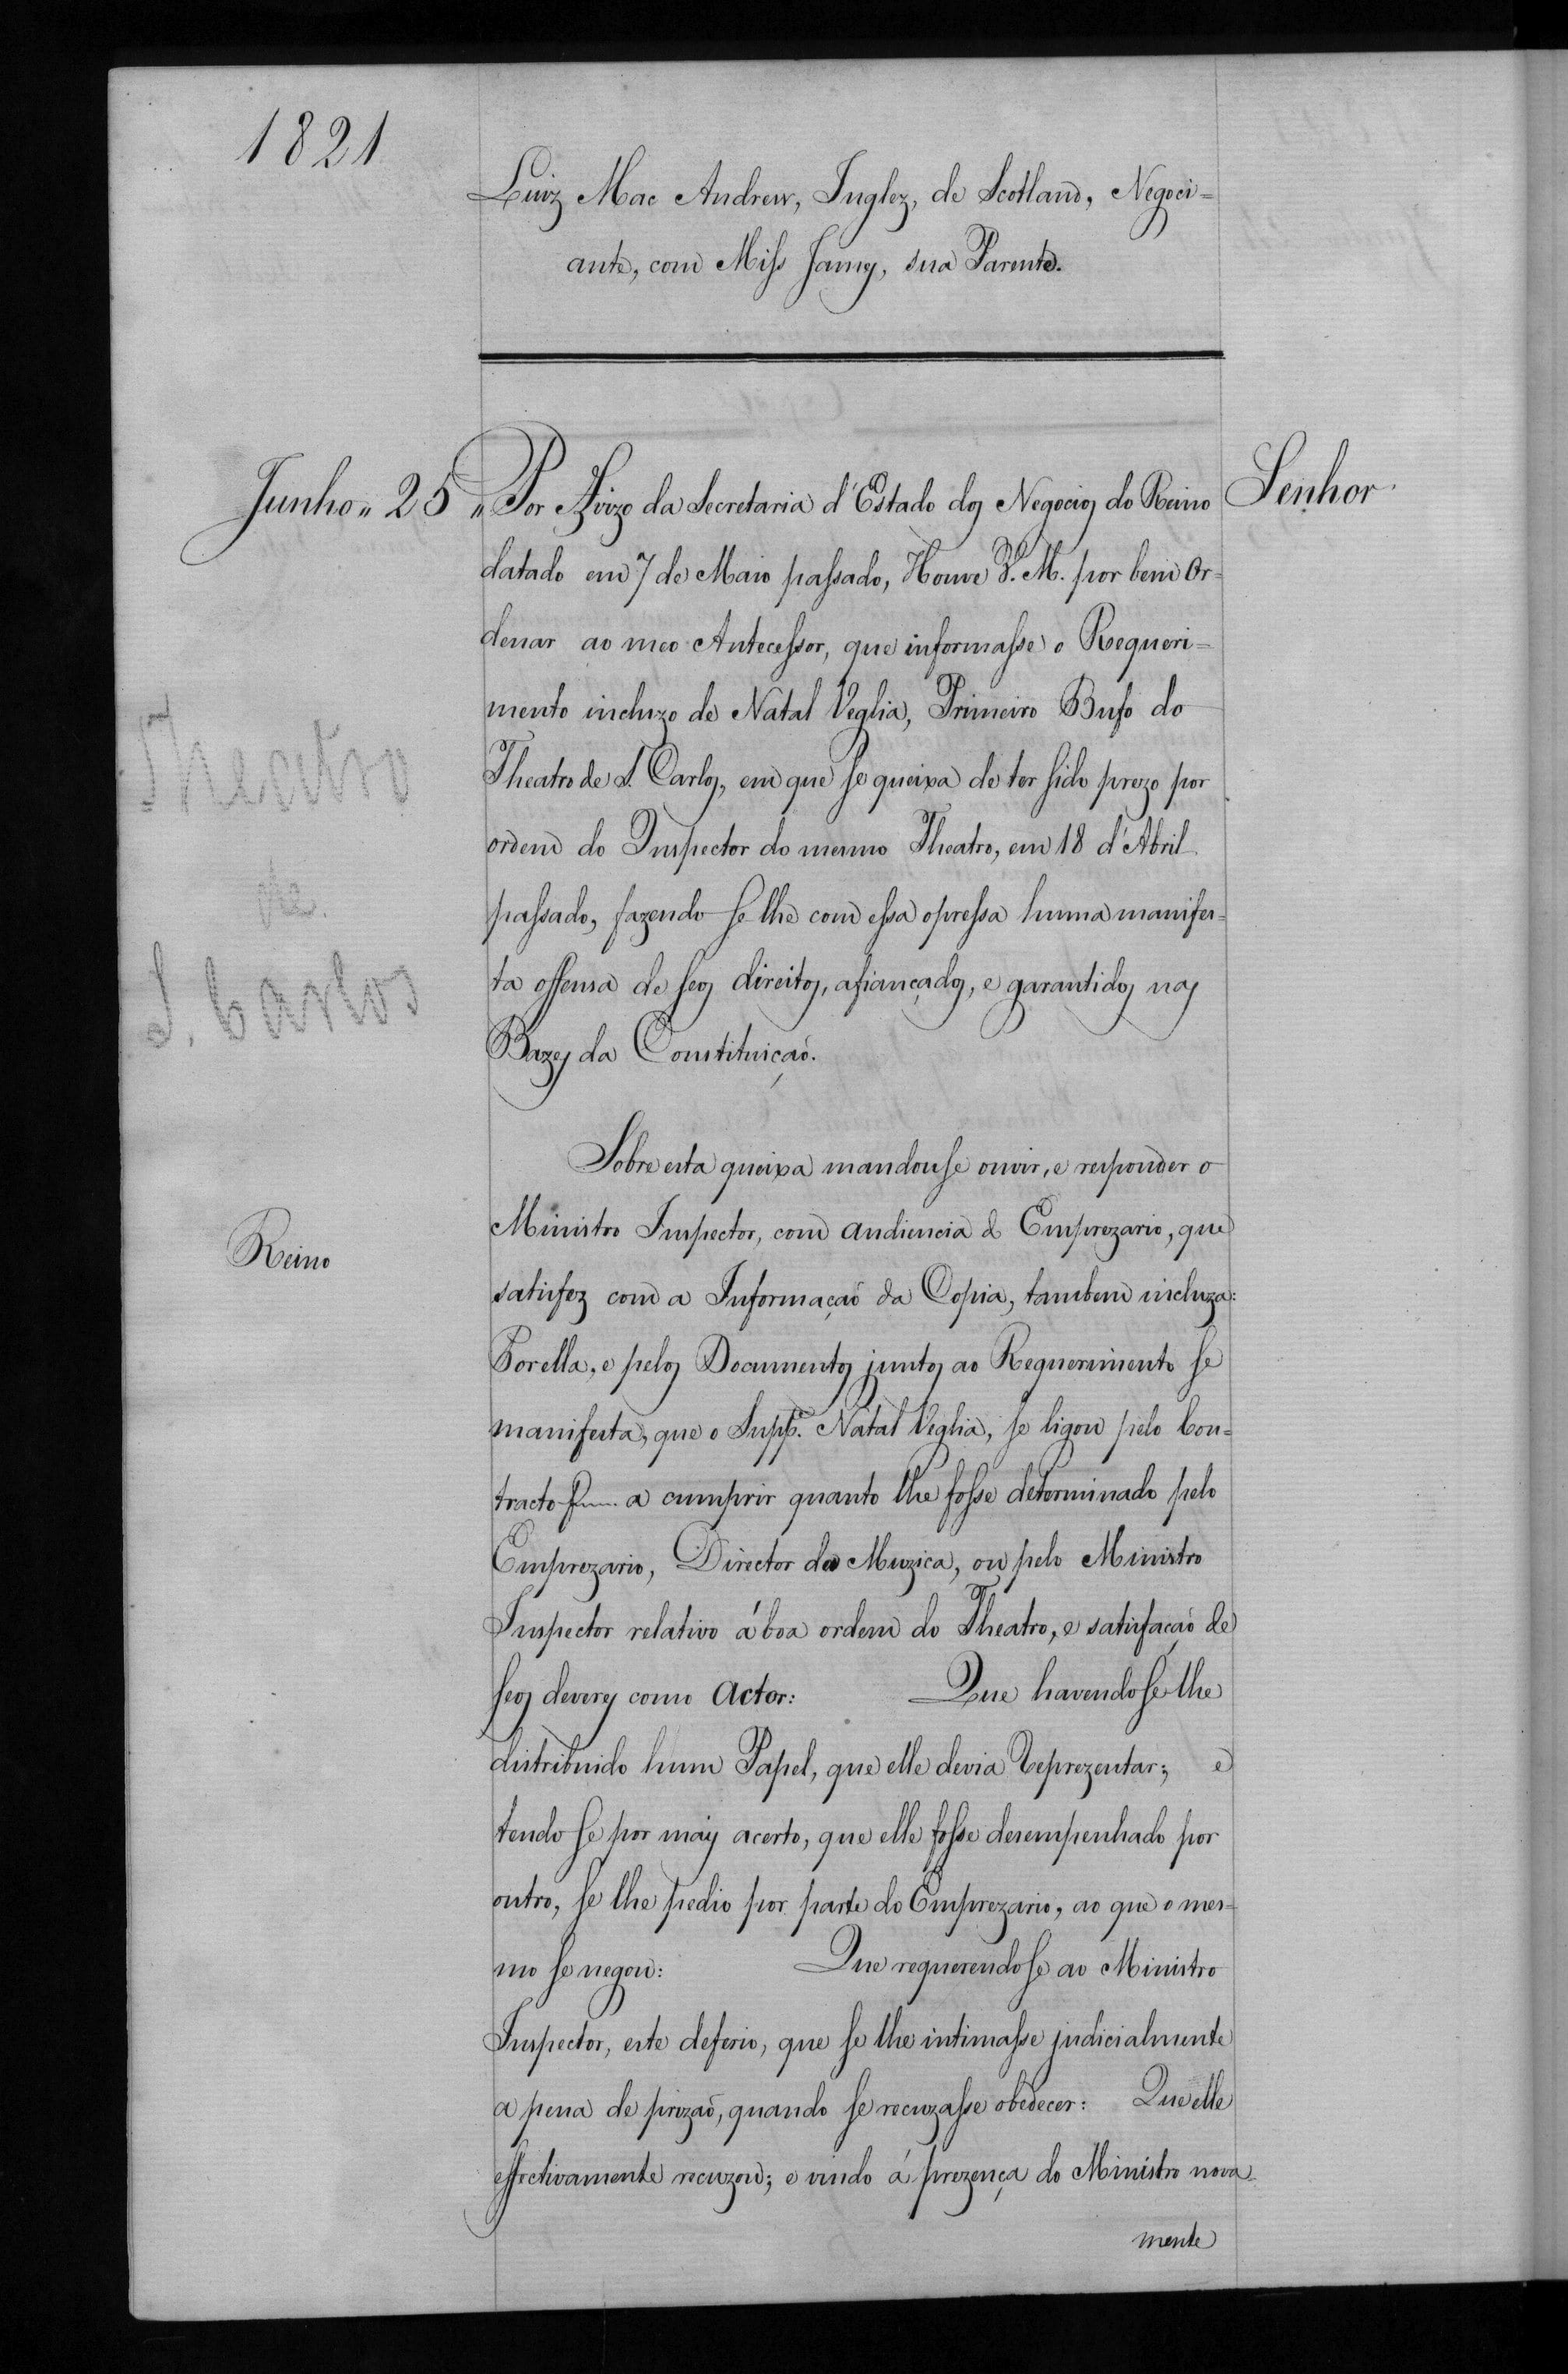 1821
Luiz Mac Andrew, Inglez, de Scotland, Negoci=
ante, com Miss Jamy, sua Parente.
Junho " 25 "
Senhor
Por Avizo da Secretaria d'Estado dos Negocios do Reino
datado em 7 de Maio passado, Houve V. M. por bem Or=
denar ao meo Antecessor, que informasse o Requeri=
mento incluzo de Natal Veglia, Primeiro Bufo do
Theatro de S. Carlos, em que se queixa de ter sido prezo por
ordem do Inspector do mesmo Theatro, em 18 d'Abril
passado, fazendo se lhe com essa opressa huma manifes=
ta offensa de seos direitos, afiançados, e garantidos nas
Bazes da Constituiçaõ.
Theatro
de
S. Carlos
Sobre esta queixa mandou se ouvir, e responder o
Ministro Inspector, com audiencia do Emprezario, que
Reino
satisfez com a Informaçaõ da Copia, tambem incluza:
Por ella, e pelos Documentos juntos ao Requerimento se
manifesta, que o Supp.e Natal Veglia, se ligou pelo Con=
tracto a cumprir quanto lhe fosse determinado pelo
Emprezario, Director da Muzica, ou pelo Ministro
Inspector relativo á boa ordem do Theatro, e satisfaçaõ de
seos deveres como Actor: Que havendo se lhe
distribuido hum Papel, que elle devia Reprezentar; e
tendo se por mais acerto, que elle fosse desempenhado por
outro, se lhe pedio por parte do Emprezario, ao que o mes=
mo se negou: Que requerendo se ao Ministro
Inspector, este deferio, que se lhe intimasse judicialmente
a pena de prizaõ, quando se recuzasse obedecer: Que elle
effectivamente recuzou; e vindo á prezença do Ministro nova=
mente